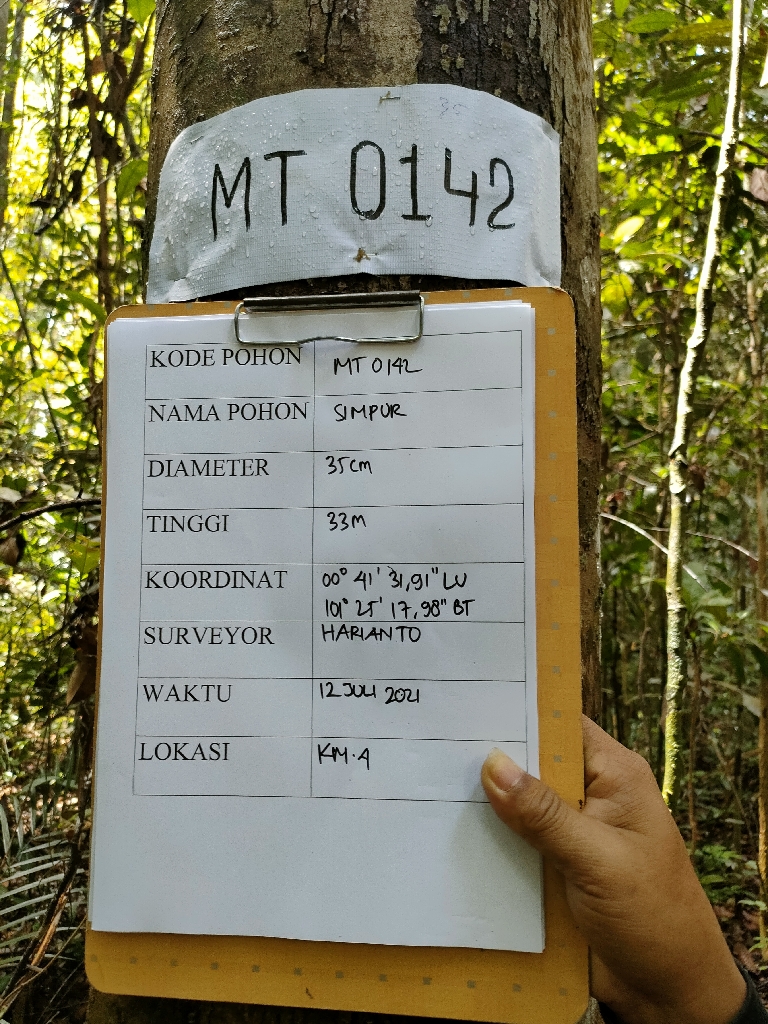 MT 0142
KODE POHON MT 0142
NAMA POHON SIMPUR
DIAMETER 35cm
TINGGI 33M
KOORDINAT 00° 41' 31,91" LU
101° 25' 17,98" BT
SURVEYOR HARIANTO
WAKTU 12 JULI 2021
LOKASI KM.4